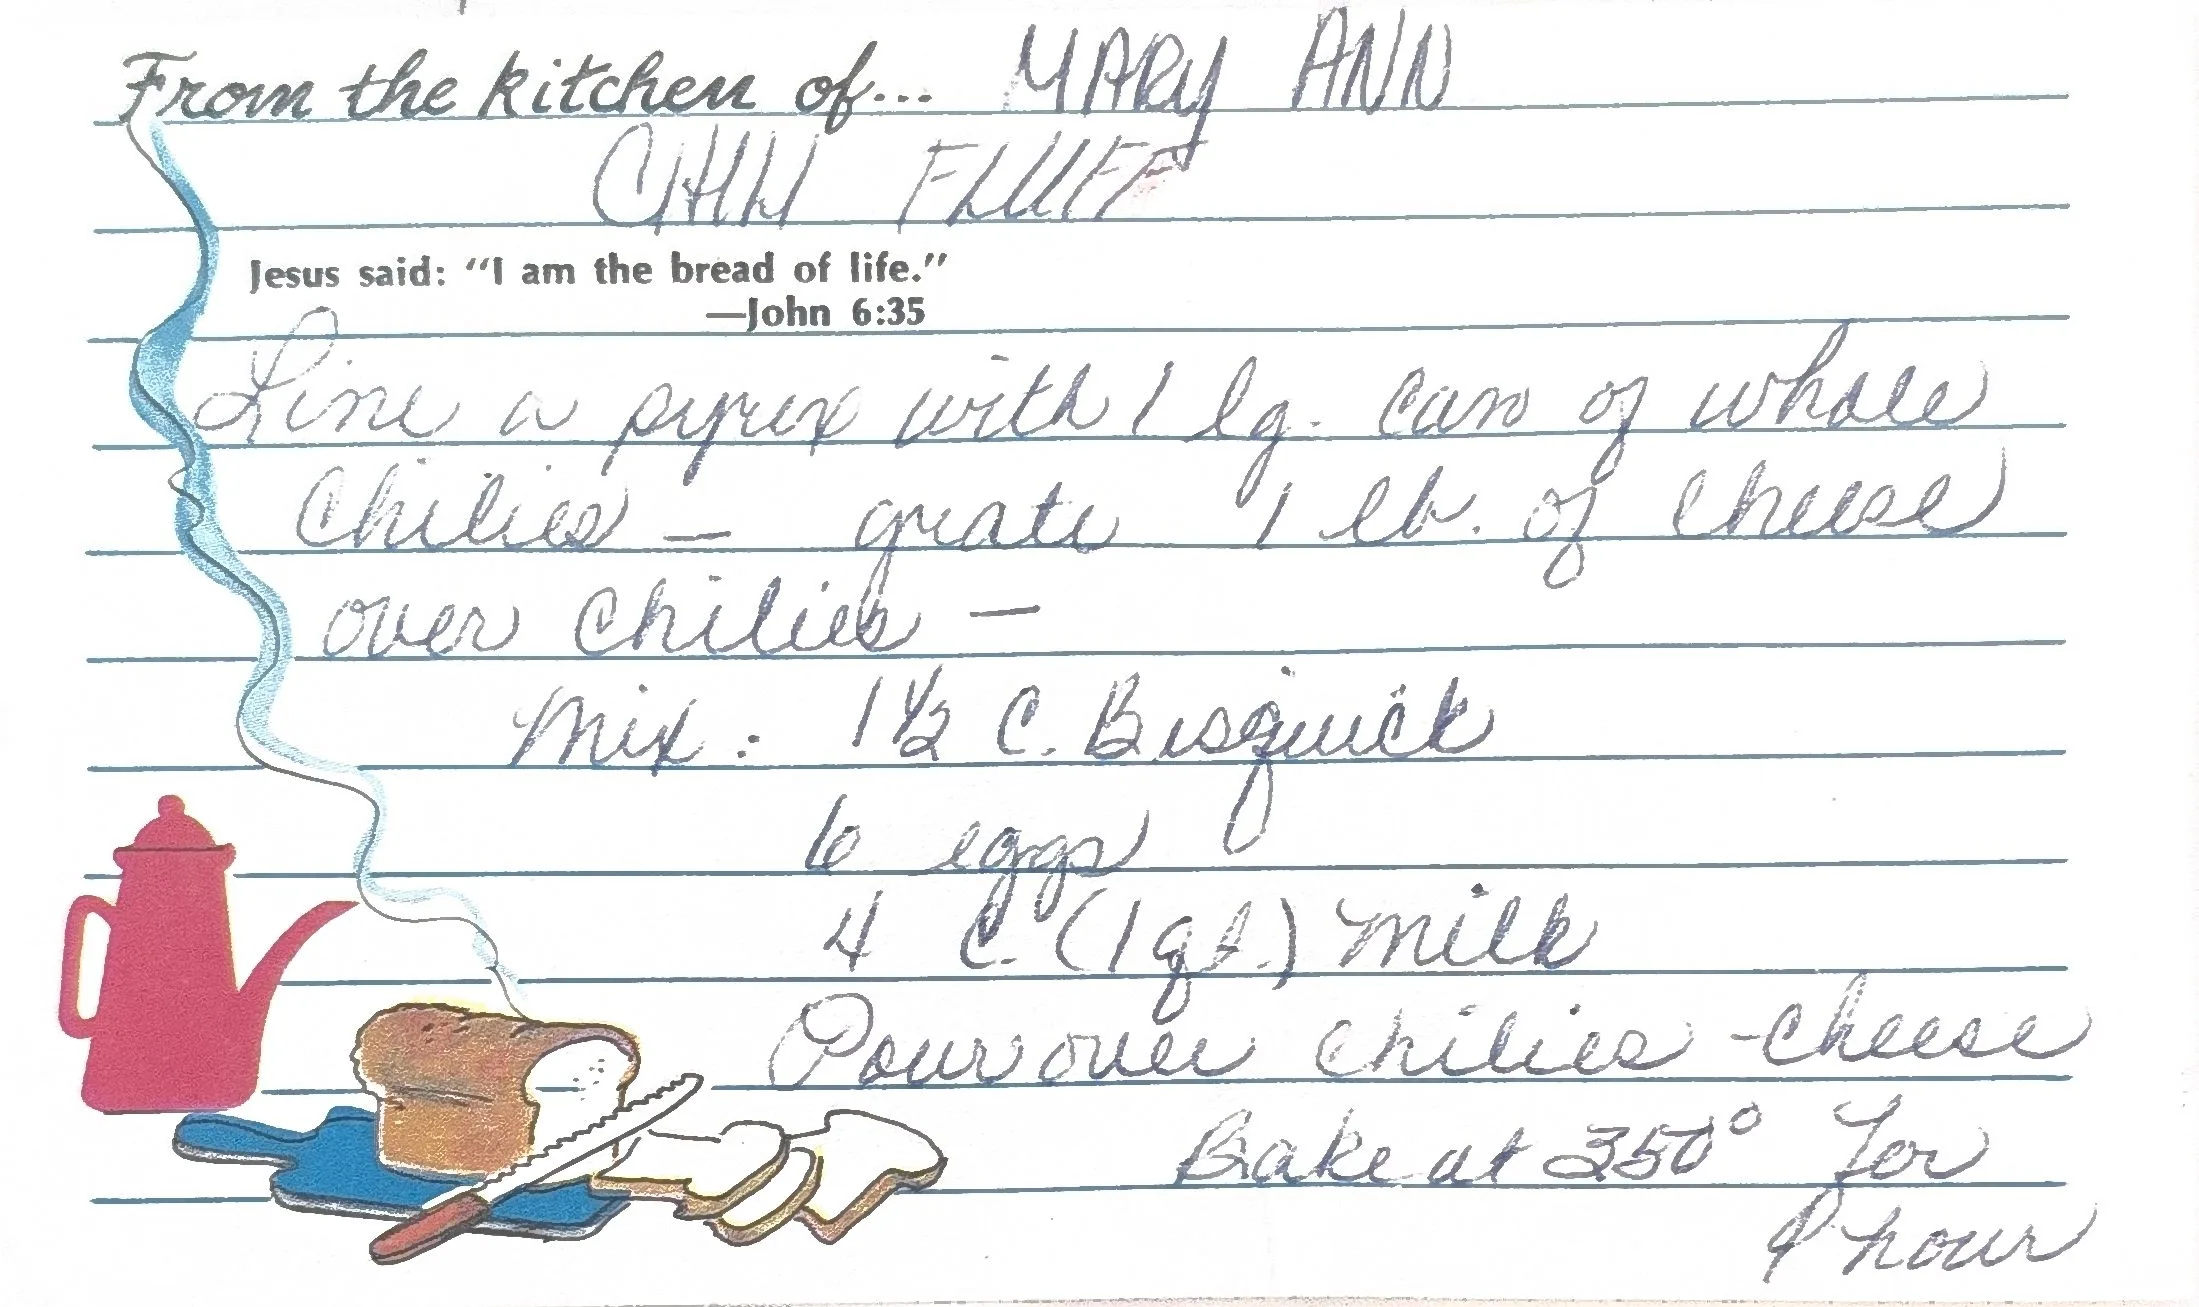 From the kitchen of... MARY ANN
CHILI FLUFF
Jesus said: “I am the bread of life.”
—John 6:35
Line a pyrex with 1 lg. can of whole
Chilies — grate 1 lb. of cheese
over chilies —
Mix: 1 1/2 C. Bisquick
6 eggs
4 C. (1 qt.) milk
Pour over chilies - cheese
Bake at 350° for
1 hour